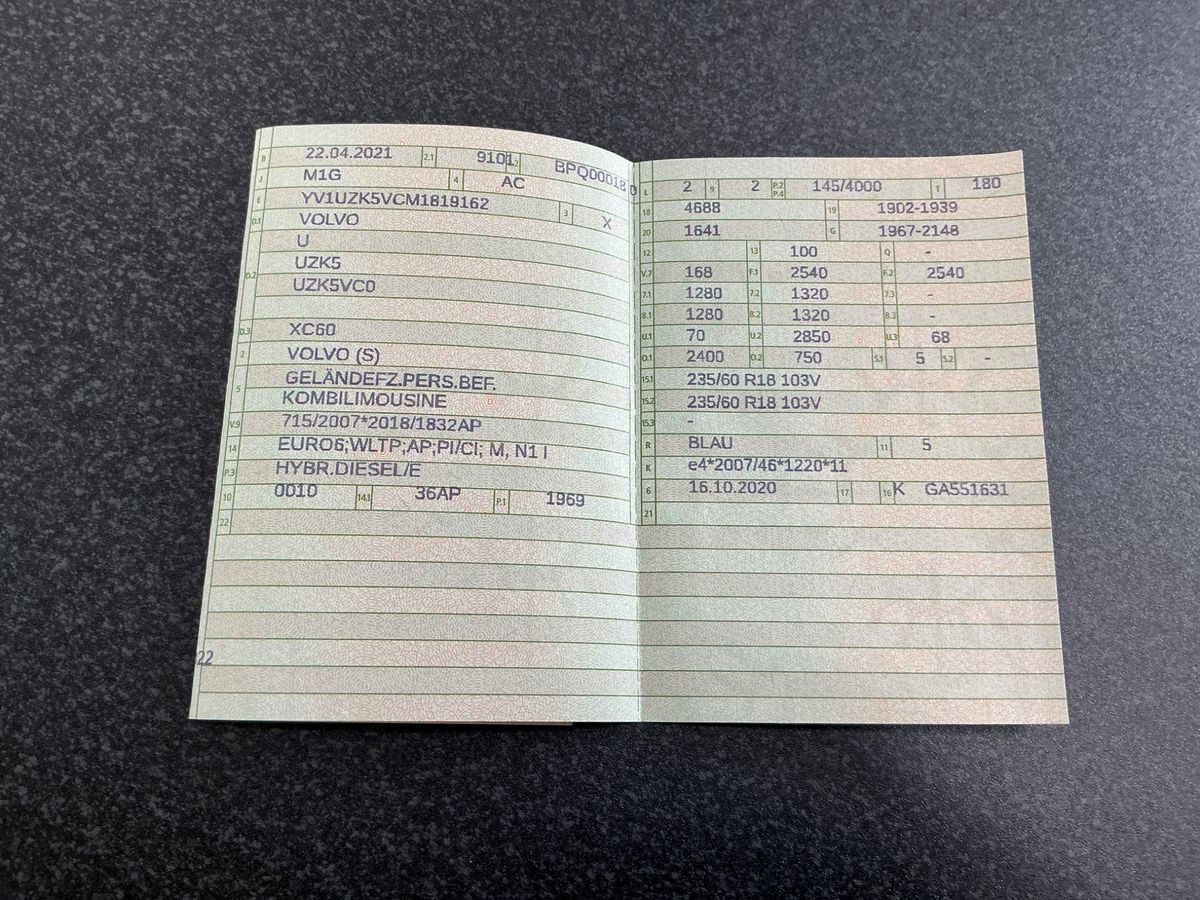 B 22.04.2021 2.1 9101 2.2 BPQ00018 0
J M1G 4 AC
E YV1UZK5VCM1819162 3 X
D.1 VOLVO
D.2 U
UZK5
UZK5VC0
D.3 XC60
2 VOLVO (S)
5 GELÄNDEFZ.PERS.BEF.
KOMBILIMOUSINE
V.9 715/2007*2018/1832AP
14 EURO6;WLTP;AP;PI/CI; M, N1 I
P.3 HYBR.DIESEL/E
10 0010 14.1 36AP P.1 1969
22
22
L 2 9 2 P.2 P.4 145/4000 T 180
18 4688 19 1902-1939
20 1641 G 1967-2148
12 13 100 Q -
V.7 168 F.1 2540 F.2 2540
7.1 1280 7.2 1320 7.3 -
8.1 1280 8.2 1320 8.3 -
U.1 70 U.2 2850 U.3 68
O.1 2400 O.2 750 S.1 5 S.2 -
15.1 235/60 R18 103V
15.2 235/60 R18 103V
15.3 -
R BLAU 11 5
K e4*2007/46*1220*11
6 16.10.2020 17 16 K GA551631
21